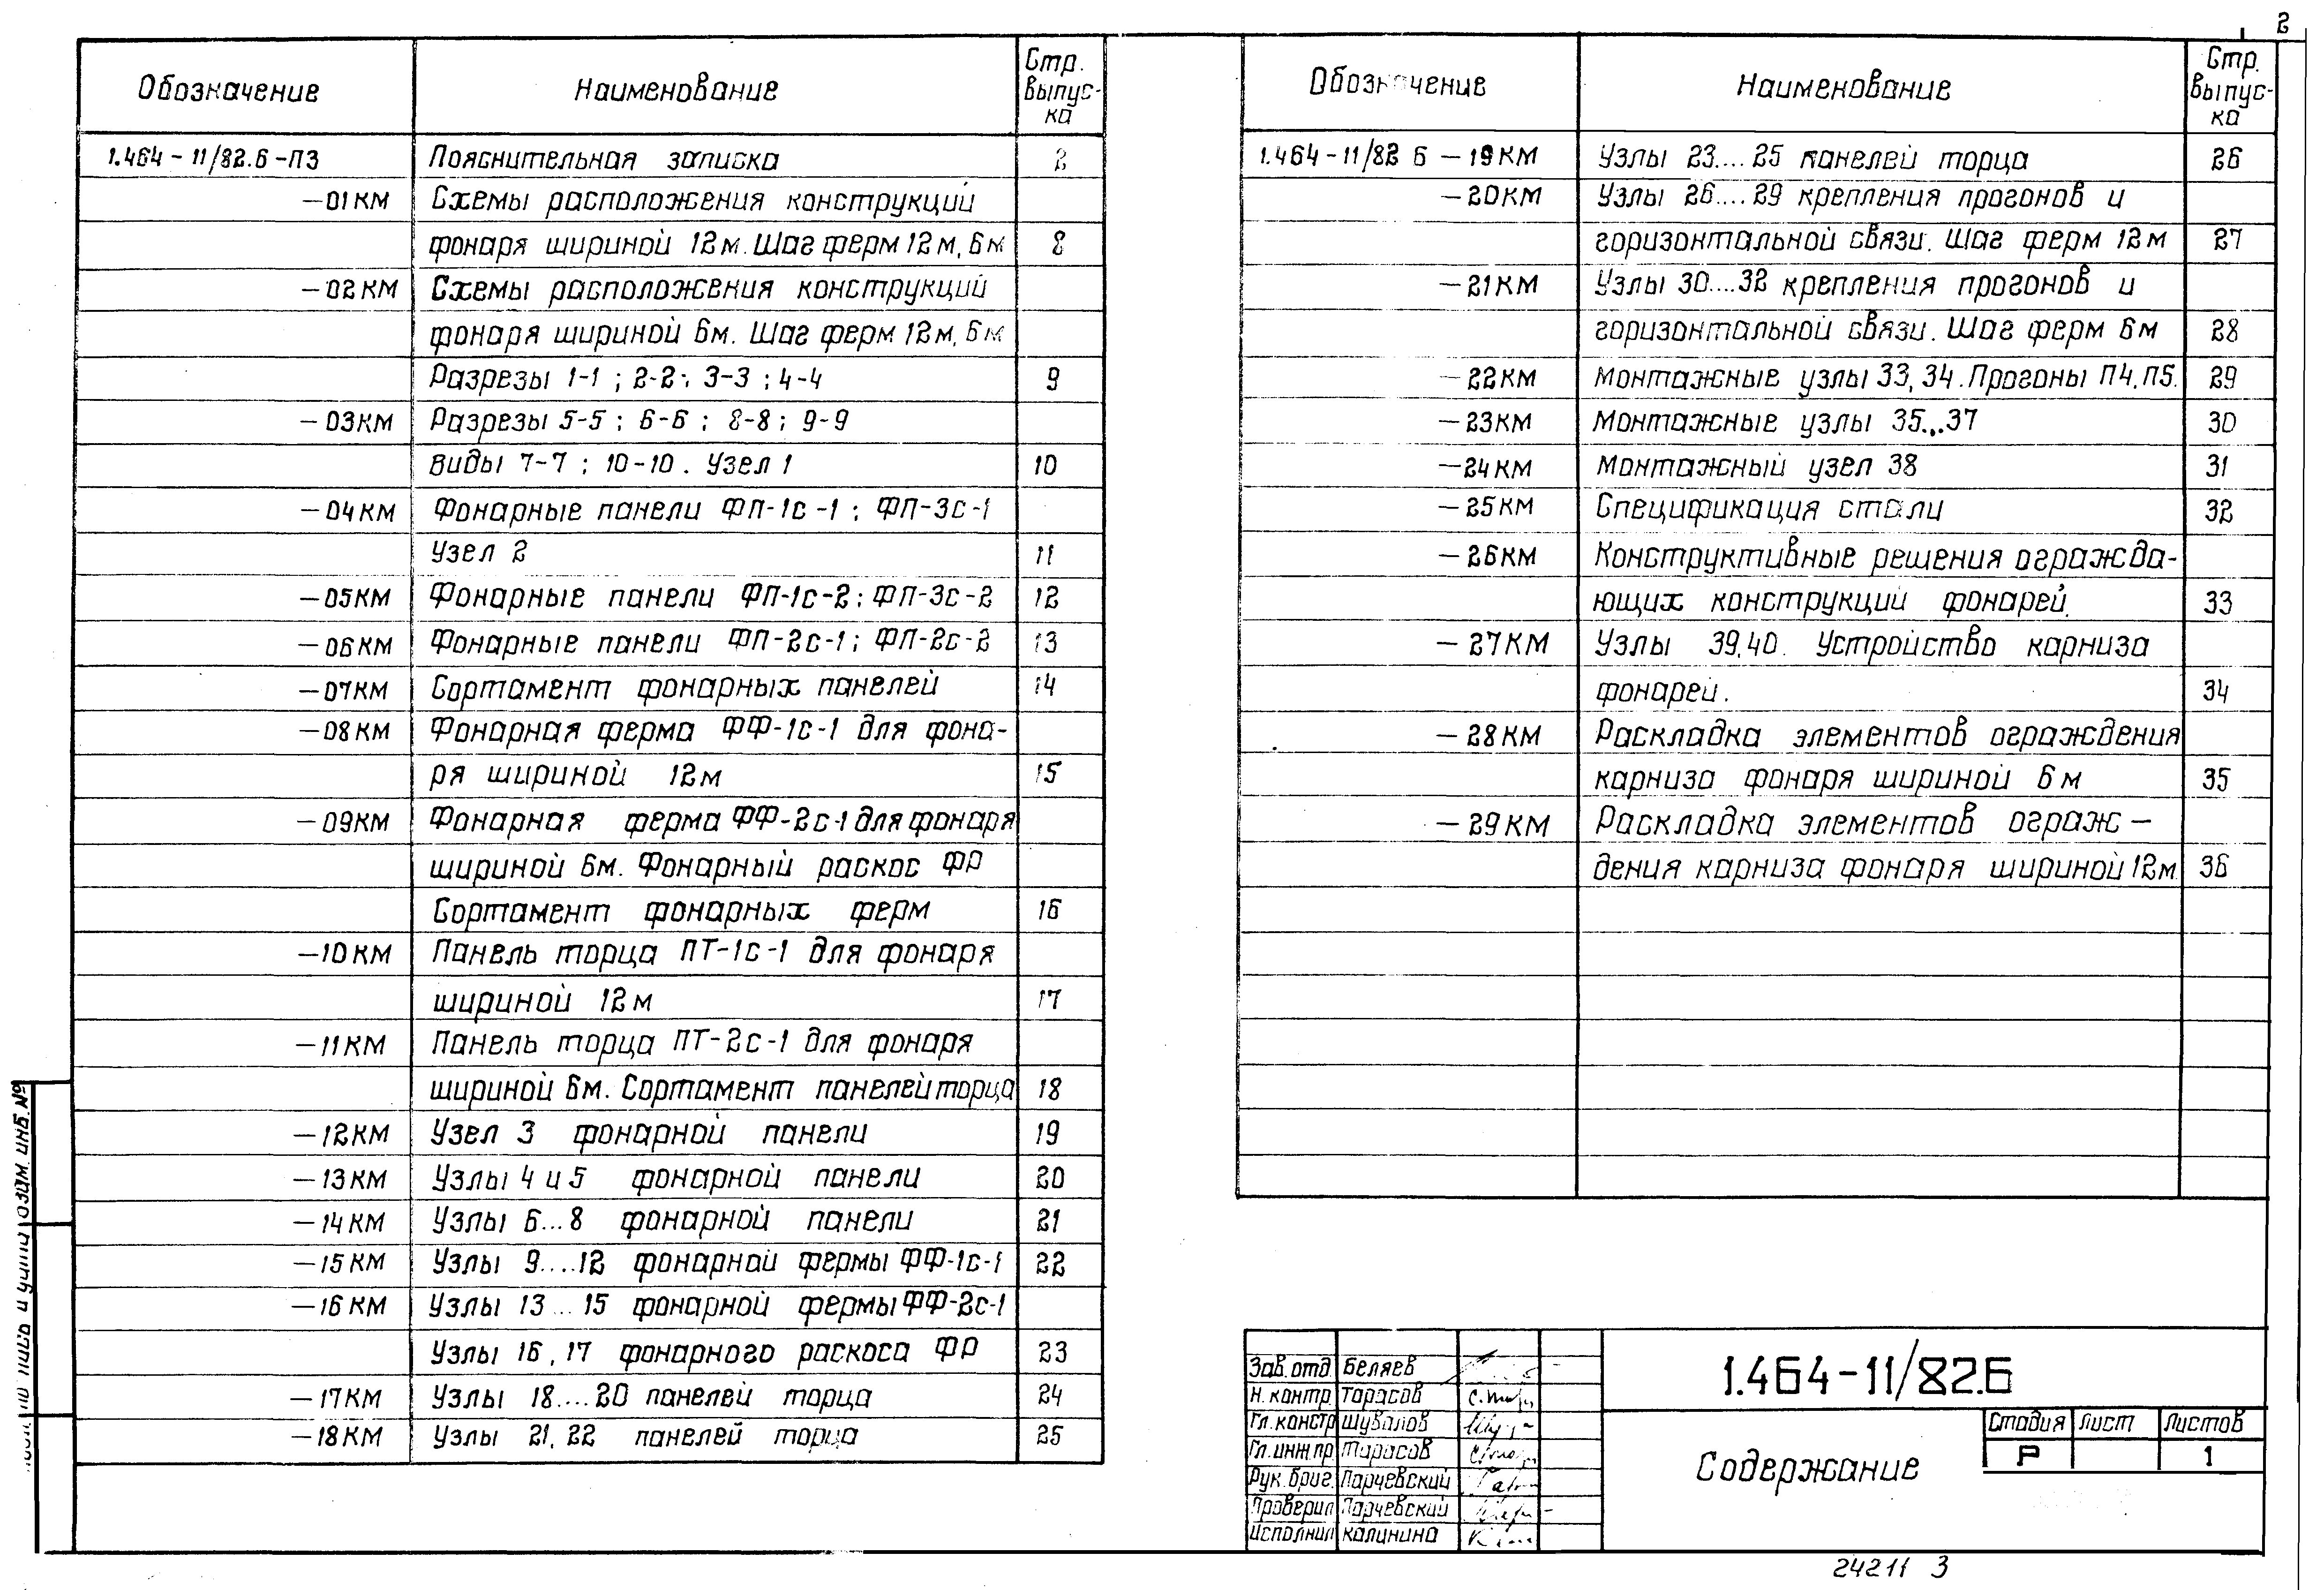 2
Обозначение Наименование Стр. выпус-ка
1.464-11/82.6-ПЗ Пояснительная записка 2
-01КМ Схемы расположения конструкций
фонаря шириной 12м. Шаг ферм 12м, 6м 8
-02КМ Схемы расположения конструкций
фонаря шириной 6м. Шаг ферм 12м, 6м
Разрезы 1-1; 2-2; 3-3; 4-4 9
-03КМ Разрезы 5-5; 6-6; 8-8; 9-9
виды 7-7; 10-10. Узел 1 10
-04КМ Фонарные панели ФП-1с-1; ФП-3с-1
Узел 2 11
-05КМ Фонарные панели ФП-1с-2; ФП-3с-2 12
-06КМ Фонарные панели ФП-2с-1; ФП-2с-2 13
-07КМ Сортамент фонарных панелей 14
-08КМ Фонарная ферма ФФ-1с-1 для фона-
ря шириной 12м 15
-09КМ Фонарная ферма ФФ-2с-1 для фонаря
шириной 6м. Фонарный раскос ФР
Сортамент фонарных ферм 16
-10КМ Панель торца ПТ-1с-1 для фонаря
шириной 12м 17
-11КМ Панель торца ПТ-2с-1 для фонаря
шириной 6м. Сортамент панелей торца 18
-12КМ Узел 3 фонарной панели 19
-13КМ Узлы 4 и 5 фонарной панели 20
-14КМ Узлы 6...8 фонарной панели 21
-15КМ Узлы 9....12 фонарной фермы ФФ-1с-1 22
-16КМ Узлы 13...15 фонарной фермы ФФ-2с-1
Узлы 16, 17 фонарного раскоса ФР 23
-17КМ Узлы 18....20 панелей торца 24
-18КМ Узлы 21, 22 панелей торца 25
Обозначение Наименование Стр. выпус-ка
1.464-11/82 6 -19КМ Узлы 23....25 панелей торца 26
-20КМ Узлы 26....29 крепления прогонов и
горизонтальной связи. Шаг ферм 12м 27
-21КМ Узлы 30....32 крепления прогонов и
горизонтальной связи. Шаг ферм 6м 28
-22КМ Монтажные узлы 33, 34. Прогоны П4, П5. 29
-23КМ Монтажные узлы 35...37 30
-24КМ Монтажный узел 38 31
-25КМ Спецификация стали 32
-26КМ Конструктивные решения огражда-
ющих конструкций фонарей. 33
-27КМ Узлы 39, 40. Устройство карниза
фонарей. 34
-28КМ Раскладка элементов ограждения
карниза фонаря шириной 6м 35
-29КМ Раскладка элементов ограж-
дения карниза фонаря шириной 12м. 36
Взам инв. №
Подпись и дата
Зав. отд. Беляев
Н. контр. Тарасов
Гл. констр Шувалов
Гл. инж. пр. Тарасов
Рук. бриг. Парчевский
Проверил Парчевский
Исполнил Калинина
1.464-11/82.6
Содержание
Стадия Лист Листов
Р 1
24211 3